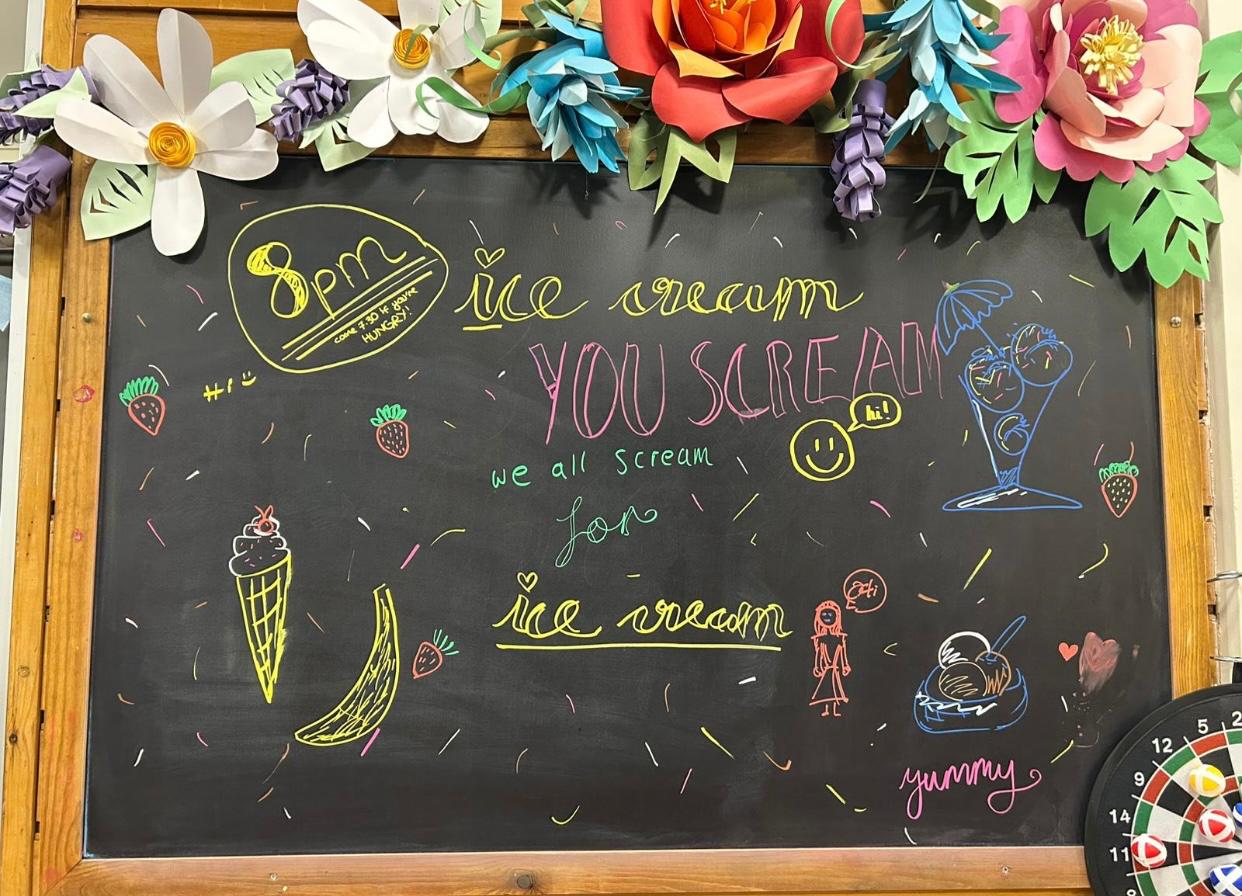 8pm
come 7.30 if you're
HUNGRY!
ice cream
YOU SCREAM
Hi
hi!
we all scream
for
ice cream
yummy
5
12
9
14
11